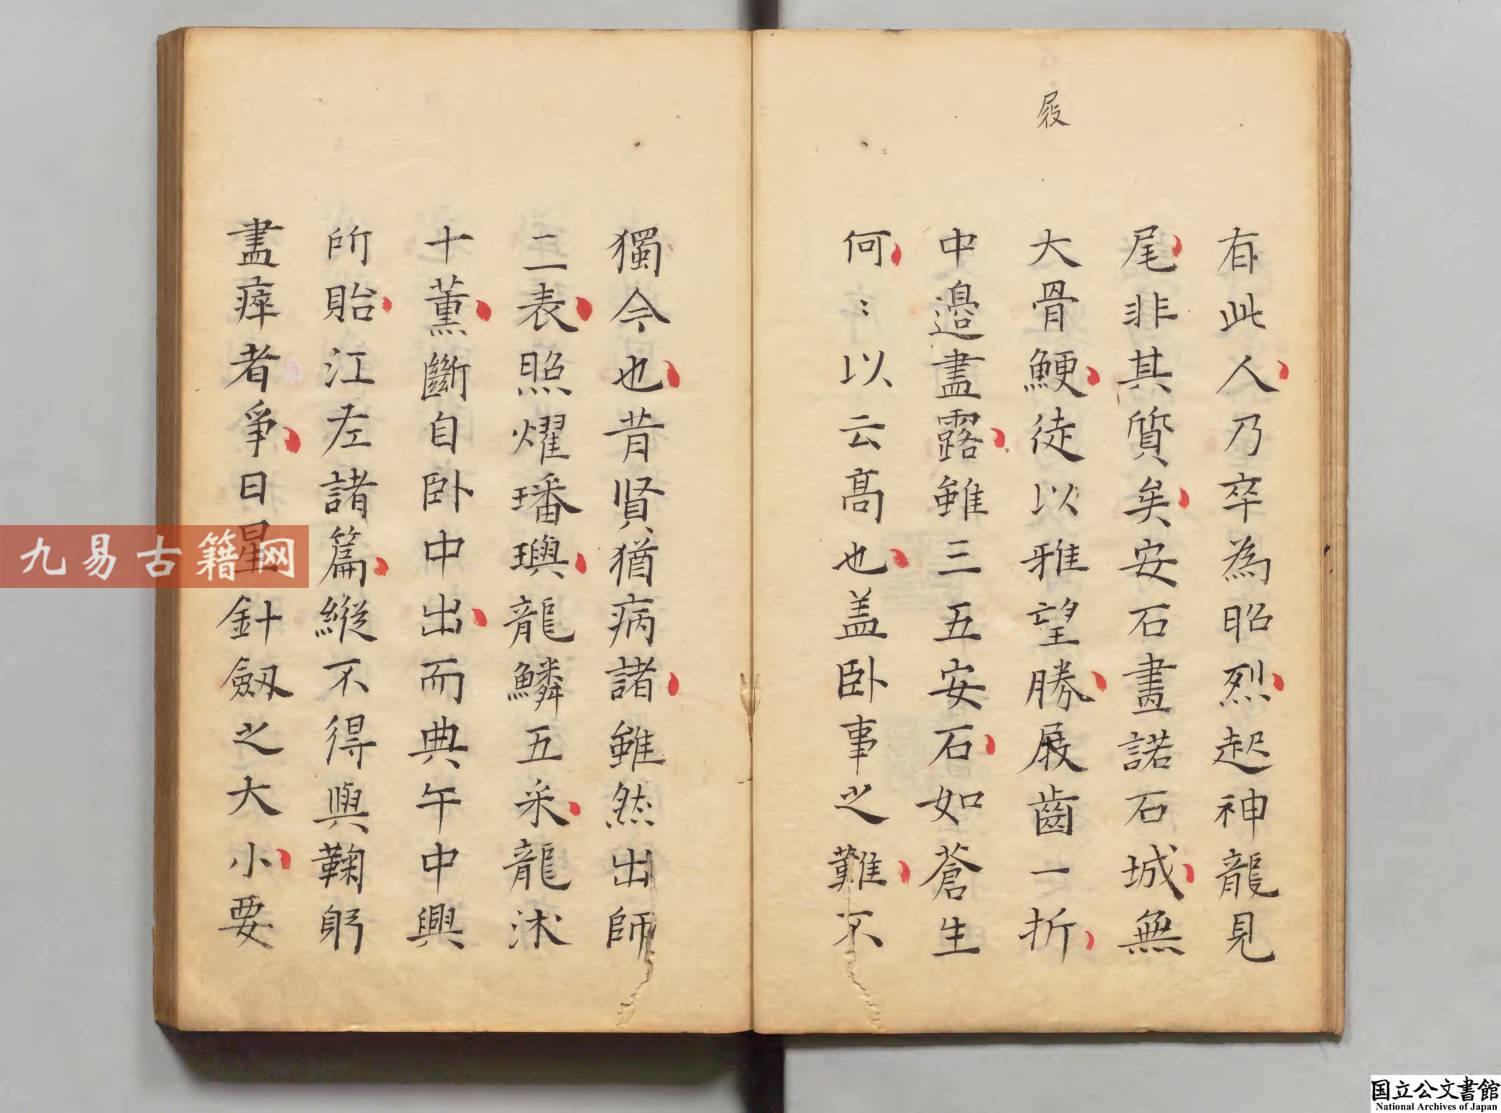 屐
有此人乃卒為昭烈起神龍見
尾非其質矣安石畫諾石城無
大骨鯁徒以雅望勝屐齒一折
中邉盡露雖三五安石如蒼生
何〻以云高也盖卧事之難不
獨今也昔贤猶病諸雖然出師
二表照燿璠璵龍鱗五采龍沭
十薰斷自卧中出而典午中興
所貽江左諸篇縱不得與鞠躬
盡瘁者爭日星針劔之大小要
九易古籍网
国立公文書館
National Archives of Japan